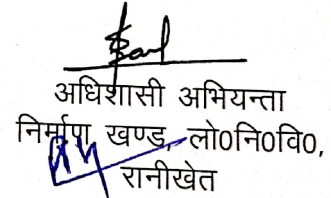 अधिशासी अभियन्ता
निर्माण खण्ड, लो0नि0वि0,
रानीखेत